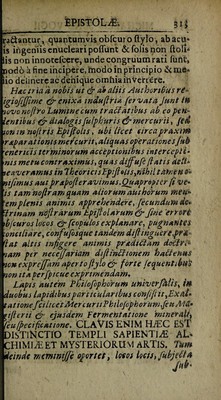 EPISTOLÆ. 313
ractantur, quantumvis obscuro stylo, ab acu-
is ingeniis enucleari possunt & solis non stoli-
dis non innotescere, unde congruum rati sunt,
modò à fine incipere, modo in principio & me-
dio delinere ac denique omnia invertere.
Hactria à nobis ut & ab aliis Authoribus re
ligiosissime & enixa industria servata sunt in
novo nostro Lumine cum tractatibus ab eo pen-
dentibus & dialogis sulphuris & mercurii, sed
non in nostris Epistolis, ubi licet circa praxim
præparationis mercurii, aliquas operationes sub
genericis terminorum acceptionibus intercepti-
onis metu contraximus, quas diffuse statis dete-
xeaveramus in Theoricis Epistolis, nihil tamen o-
misimus aut præposteravimus. Quapropter si ve-
lis tam nostram quam aliorum authorum men-
tem plenis animis apprehendere, secundum do-
ctrinam nostrarum Epistolarum & sine errore
obscuros locos & scopulos explanare, pugnantes
conciliare, confusaque tandem distinguere, præ-
stat altis infigere animis prædictam doctri-
nam per necessariam distinctionem hactenus
non expressam aperto stylo & forte sequentibus
non ita perspicue exprimendam.
Lapis autem Philosophorum universalis, in
duobus lapidibus particularibus consistit, Exal-
tatione scilicet Mercurii Philosophorum, seu Ma-
gisterii & ejusdem Fermentatione minerali,
seu specificatione. CLAVIS ENIM HÆC EST
DISTINCTIO TEMPLI SAPIENTIÆ AL-
CHIMIÆ ET MYSTERIORUM ARTIS. Tum
deinde meminisse oportet, lovos locis, subjecta
sub-